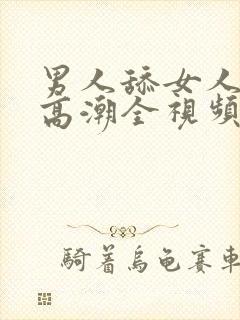 男人舔女人
高潮全視頻
騎着烏龜賽車